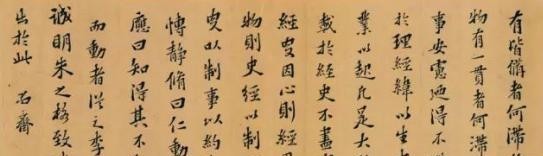 有皆備者何滯
物有一貫者何滯
事安得不
於理經緯以生
業以起凡是大
載於經史不盡
經史因心則經
物則史經以制
史以制事以約
博靜脩曰仁動
應曰知得其不
而動者從之李
誠明朱之格致
出於此 石齋